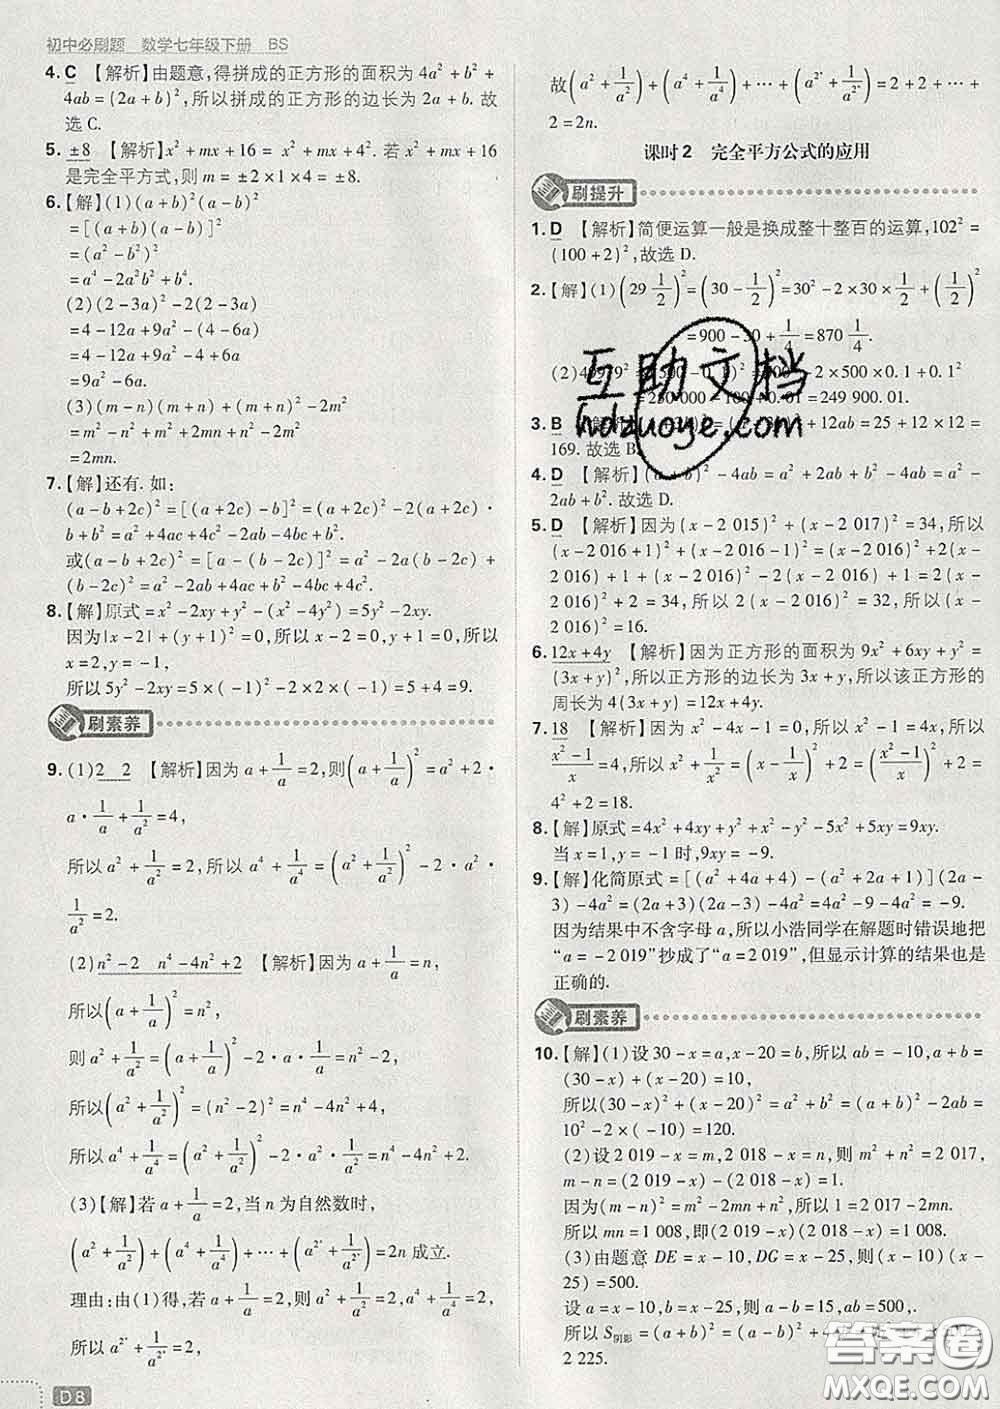 初中必刷题 数学七年级下册 BS
4. C 【解析】由题意,得拼成的正方形的面积为4a²+b²+
4ab=(2a+b)²,所以拼成的正方形的边长为2a+b.故
选C.
5. ±8 【解析】x²+mx+16= x²+mx+4².若x²+mx+16
是完全平方式,则m=±2×1×4=±8.
6.【解】(1)(a+b)²(a-b)²
=[(a+b)(a-b)]²
=(a²-b²)²
=a⁴-2a²b²+b⁴.
(2)(2-3a)²-2(2-3a)
=4-12a+9a²-(4-6a)
=4-12a+9a²-4+6a
=9a²-6a.
(3)(m-n)(m+n)+(m+n)²-2m²
=m²-n²+m²+2mn+n²-2m²
=2mn.
7.【解】还有.如:
(a-b+2c)²=[(a+2c)-b]²=(a+2c)²-2(a+2c)·
b+b²=a²+4ac+4c²-2ab-4bc+b².
或(a-b+2c)²=[a-(b-2c)]²=a²-2a(b-2c)+
(b-2c)²=a²-2ab+4ac+b²-4bc+4c².
8.【解】原式=x²-2xy+y²-(x²-4y²)=5y²-2xy.
因为|x-2|+(y+1)²=0,所以x-2=0,y+1=0,所以
x=2,y=-1,
所以5y²-2xy=5×(-1)²-2×2×(-1)=5+4=9.
刷素养
9.(1)2 2 【解析】因为a+1/a=2,则(a+1/a)²=a²+2·
a·1/a+1/a²=4,
所以a²+1/a²=2,所以a⁴+1/a⁴=(a²+1/a²)²-2·a²·
1/a²=2.
(2)n²-2 n⁴-4n²+2 【解析】因为a+1/a=n,
所以(a+1/a)²=n²,
则a²+1/a²=(a+1/a)²-2·a·1/a=n²-2,
所以(a²+1/a²)²=(n²-2)²=n⁴-4n²+4,
所以a⁴+1/a⁴=(a²+1/a²)²-2·a²·1/a²=n⁴-4n²+2.
(3)【解】若a+1/a=2,当n为自然数时,
(a²+1/a²)+(a⁴+1/a⁴)+…+ =2n成立.
理由:由(1)得,若a+1/a=2,则a²+1/a²=2,
所以
D8
故(a²+1/a²)+(a⁴+1/a⁴)+…+ =2+2+…+
2=2n.
课时2 完全平方公式的应用
刷提升
1. D 【解析】简便运算一般是换成整十整百的运算,102²=
(100+2)²,故选D.
2.【解】(1)(29 1/2)²=(30-1/2)²=30²-2×30×1/2+(1/2)²
=900-30+1/4=870 1/4.
(2)499.9²=(500-0.1)²=500²-2×500×0.1+0.1²
=250 000-100+0.01=249 900.01.
3. B +12ab=25+12×12=
169.故选B.
4. D 【解析】(a+b)²-4ab=a²+2ab+b²-4ab=a²-
2ab+b².故选D.
5. D 【解析】因为(x-2 015)²+(x-2 017)²=34,所以
(x-2 016+1)²+(x-2 016-1)²=(x-2 016)²+2(x-
2 016)+1+(x-2 016)²-2(x-2 016)+1=2(x-
2 016)²+2=34,所以2(x-2 016)²=32,所以(x-
2 016)²=16.
6. 12x+4y 【解析】因为正方形的面积为9x²+6xy+y²=
(3x+y)²,所以正方形的边长为3x+y,所以该正方形的
周长为4(3x+y)=12x+4y.
7. 18 【解析】因为x²-4x-1=0,所以x²-1=4x,所以
(x²-1)/x=4,所以x²+1/x²=(x-1/x)²+2=((x²-1)/x)²+2=
4²+2=18.
8.【解】原式=4x²+4xy+y²+x²-y²-5x²+5xy=9xy.
当x=1,y=-1时,9xy=-9.
9.【解】化简原式=[(a²+4a+4)-(a²+2a+1)](2a-
3)-4a²=(2a+3)(2a-3)-4a²=4a²-9-4a²=-9.
因为结果中不含字母a,所以小浩同学在解题时错误地把
“a=-2 019”抄成了“a=2 019”,但显示计算的结果也是
正确的.
刷素养
10.【解】(1)设30-x=a,x-20=b,所以ab=-10,a+b=
(30-x)+(x-20)=10,
所以(30-x)²+(x-20)²=a²+b²=(a+b)²-2ab=
10²-2×(-10)=120.
(2)设2 019-x=m,2 018-x=n,则m²+n²=2 017,
m-n=(2 019-x)-(2 018-x)=1.
因为(m-n)²=m²-2mn+n²,所以1=2 017-2mn.
所以mn=1 008,即(2 019-x)(2 018-x)=1 008.
(3)由题意DE=x-10,DG=x-25,则(x-10)(x-
25)=500.
设a=x-10,b=x-25,则a-b=15,ab=500,.
所以S阴影=(a+b)²=(a-b)²+4ab
2 225.
互助文档
hdzuoye.com
答案圈
MXQE.COM